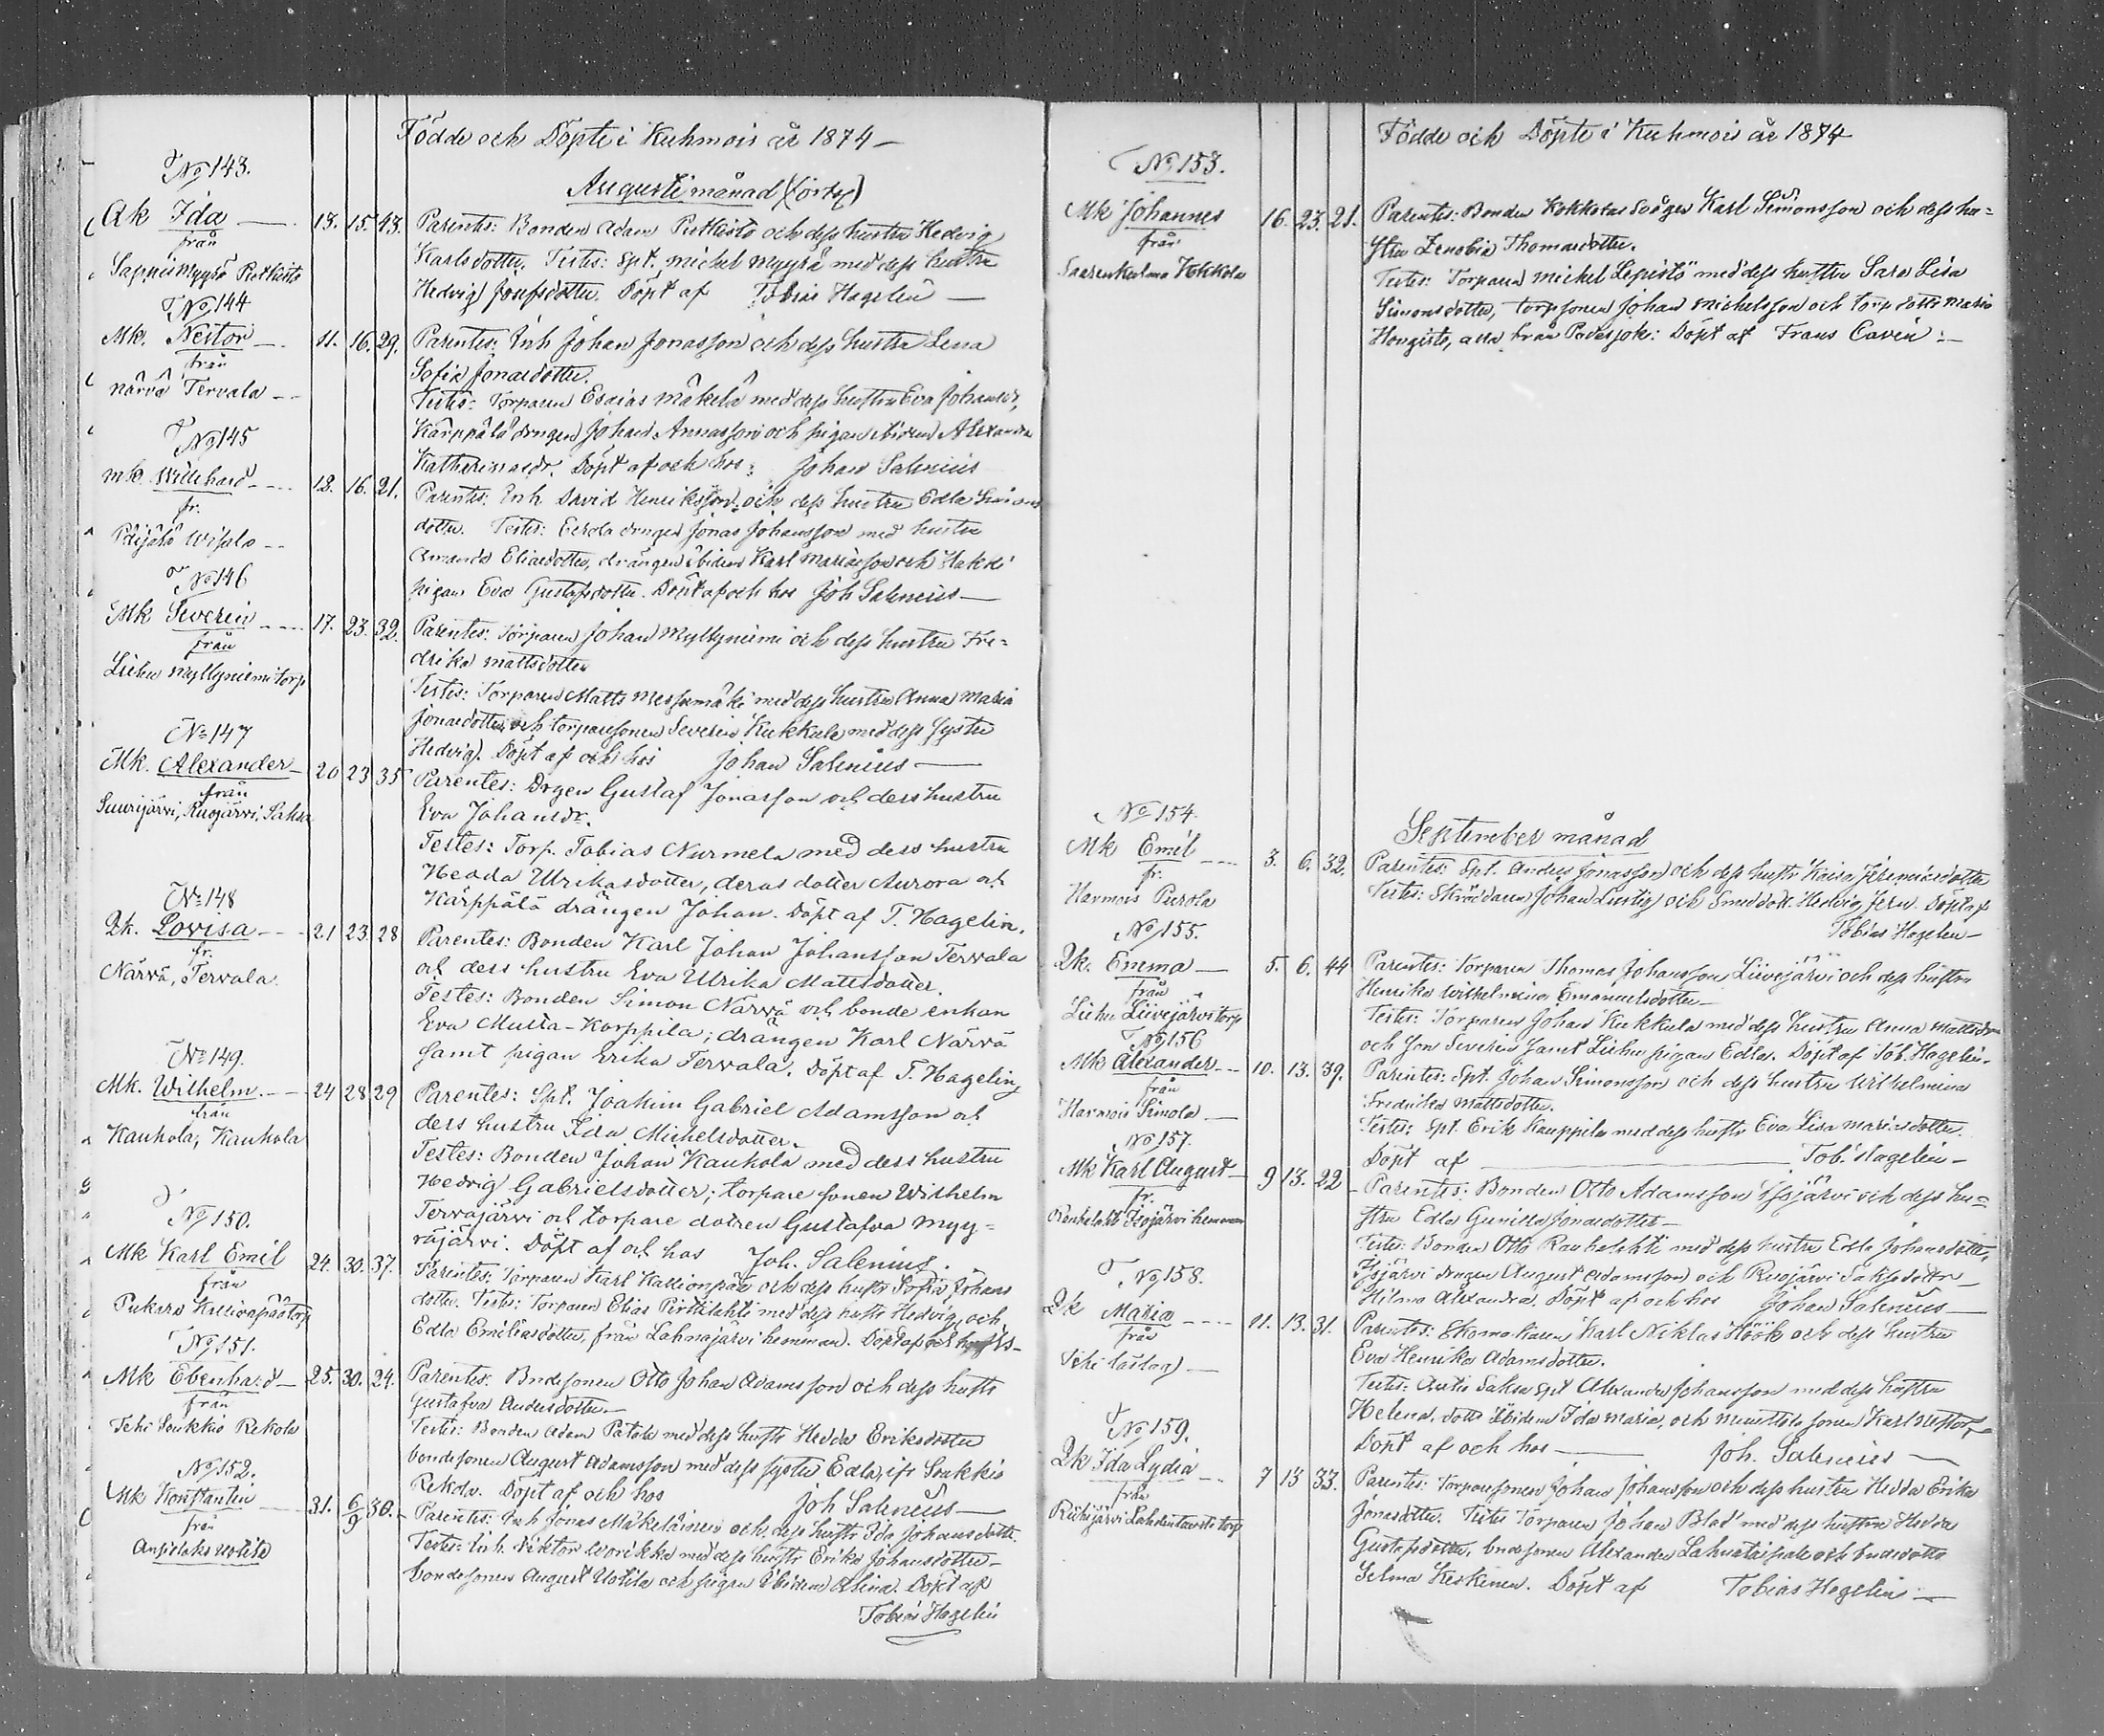 Födde och Döpte i Kuhmois år 1874
Augusti månad (forts.)
No 143.
Qk Ida
från
Sappee Myyrä Putkisto
13. 15. 43.
Parentes: Bonden Adam Putkisto och dess hustru Hedvig
Karlsdotter. Testes: Spt. Michel Myyrä med dess hustru
Hedvig Josefsdotter. Döpt af Tobias Hagelin
No 144
Mk. Nestor
från
Närvä Tervala
11. 16. 29.
Parentes: Inh Johan Jonasson och dess hustru Lena
Sofia Jonasdotter.
Testes: Torparen Esaias Mäkelä med dess hustru Eva Johansdr,
Kärppälä drngen Johan Annasson och pigan ibidem Alexandra
Katharinasdr. Döpt af och hos: Johan Salenius
No 145
Mk. Willehard
fr.
Päijälä
18. 16. 21.
Parentes: Inh David Henriksson och dess hustru Edla Simons
dotter. Testes: Eerola drngen Jonas Johansson med hustru
Amanda Eliasdotter, drängen ibidem Karl Mariasson och
pigan Eva Gustafsdotter. Döpt af och hos Joh Salenius
No 146
Mk Severin
från
Lieho Myllyniemi torp
17. 23. 32.
Parentes: Torparen Johan Myllyniemi och dess hustru Fre=
drika Mattsdotter
Testes: Torparen Matts med dess hustru Anna Maria
Jonasdotter och torparesonen Severin Kukkula med dess syster
Hedvig. Döpt af och hos Johan Salenius
No 147
Mk. Alexander
från
Suurijärvi, Ruojärvi, Saksa
20 23 35
Parentes: Drgen Gustaf Jonasson och dess hustru
Eva Johansdr.
Testes: Torp. Tobias Nurmela med dess hustru
Hedda Ulrikasdotter, deras dotter Aurora och
Kärppälä drängen Johan. Döpt af T. Hagelin.
No 148
Qk. Lovisa
fr.
Närvä, Tervala.
21 23 28
Parentes: Bonden Karl Johan Johansson Tervala
och dess hustru Eva Ulrika Mattsdotter.
Testes: Bonden Simon Närvä och bonde enkan
Eva Musta-Korppila; drängen Karl Närvä
samt pigan Erika Tervala. Döpt af T. Hagelin
No 149.
Mk. Wilhelm.
från
Kauhola, Kauhola
24 28 29
Parentes: Spt. Joakim Gabriel Adamsson och
dess hustru Ida Michelsdotter.
Testes: Bonden Johan Kauhola med dess hustru
Hedvig Gabrielsdotter; torpare sonen Wilhelm
Tervajärvi och torpare dottren Gustafva Myy=
räjärvi. Döpt af och hos Joh. Salenius.
No 150.
Mk Karl Emil
från
Pukara Kallionpää torp
24. 30. 37.
Parentes: Torparen Karl Kallionpää och dess hustr Sofia Johans
dotter. Testes: Torparen Elias Pirttilahti med dess hustr Hedvig, och
Edla Emiliasdotter, från Lahnajärvi hemman. Döpt af och
No 151.
Mk Ebenhard
från
Tehi Soukkio Rekola
25. 30. 24.
Parentes: Bndesonen Otto Johan Adamsson och dess hustr
Gustafva Andersdotter.
Testes: Bonden Adam Patola med dess hustr Hedda Eriksdotter
bondesonen August Adamsson med dess syster Edla, ifr Soukkio
Rekola. Döpt af och hos Joh Salenius
No 152.
Mk Konstantin
från
Uotila
31. 6/9 30.
Parentes: Inh Jonas Mäkeläinen och dess hustr Ida Johansdotter.
Testes: Inh. Viktor Worikka med dess hustr Erika Johansdotter
bondesonen August Uotila och pigan ibidem Alina. Döpt af
Tobias Hagelin
Födde och Döpte i Kuhmois år 1874
No 153.
Mk Johannes
från
Saarenkulma Kokkola
16. 23. 21.
Parentes: Bonden Kokkolas Karl Simonsson och dess hu=
stru Zenobia Thomasdotter.
Testes: Torparen Michel Lepistö med dess hustru Sara Lisa
Simonsdotter, torpsonen Johan Michelsson och torp dottr Maria
Hongisto, alla från Padasjoki: Döpt af Frans Caven
September månad
No 154.
Mk Emil
fr.
Harmois Purola
3. 6. 32.
Parentes: Spt. Anders Jonasson och dess hustr Kaisa Jeremiasdotter
Testes: Skräddaren Johan Lustig och Smed dott. Hedvig Jern. Döpt af
Tobias Hagelin
No 155.
Qk. Emma
från
Lieho Liivejärvi torp
5. 6. 44
Parentes: Torparen Thomas Johansson Liivejärvi och dess hustru
Henrika Wilhelmina Emanuelsdotter
Testes: Torparen Johan Kukkula med dess hustru Anna Mattsdotter
och son Severin samt Lieho pigan Edla. Döpt af Tob. Hagelin.
No 156
Mk Alexander
från
Harmois Simola
10. 13. 39.
Parentes: Spt. Johan Simonsson och dess hustru Wilhelmina
Fredrika Mattsdotter.
Testes: Spt. Erik Kauppila med dess hustr Eva Lisa Mariasdotter.
Döpt af Tob. Hagelin
No 157.
Mk Karl August
fr.
Rauhalahti Isojärvi hemman
9 13. 22
Parentes: Bonden Otto Adamsson Isojärvi och dess hu=
stru Edla Gunilla Jonasdotter
Testes: Bonden Otto Rauhalahti med dess hustru Edla Johansdotter,
Isojärvi drngen August Adamsson och Ruojärvi Saksa dottr
Hilma Alexandra. Döpt af och hos Johan Salenius
No 158.
Qk Maria
från
Tehi
11. 13. 31.
Parentes: Skomakaren Karl Niklas Höök och dess hustru
Eva Henrika Adamsdotter.
Testes: Antis Saksa spt Alexander Johansson med dess hustru
Helena, dottr ibidem Ida Maria, och sonen Karl Nestor,
Döpt af och hos Joh. Salenius
No 159.
Qk Ida Lydia
från
Riihijärvi Lahdentausta torp
7 13 33.
Parentes: Torparesonen Johan Johansson och dess hustru Hedda Erika
Jonasdotter. Testes Torparen Johan Blad med dess hustru Hedda
Gustafsdotter, bndesonen Alexander och bndedotter
Selma Keskinen. Döpt af Tobias Hagelin